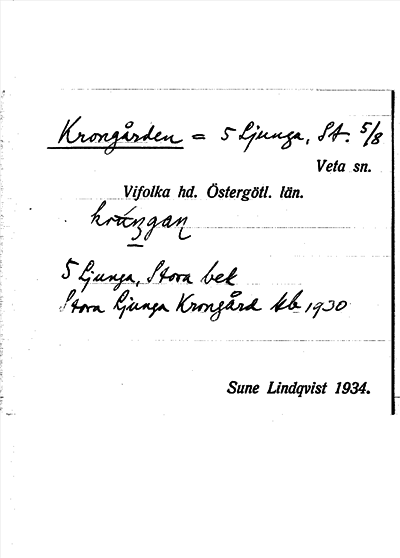 Krongården = 5 Ljunga, St. 5/8
Veta sn.
Vifolka hd. Östergötl. län.
5 Ljunga, Stora bek
Stora Ljunga Krongård tb 1930
Sune Lindqvist 1934.